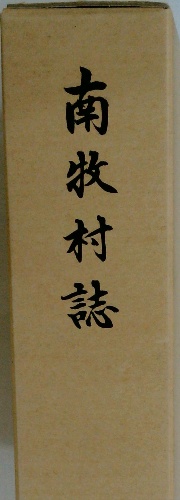 南牧村誌